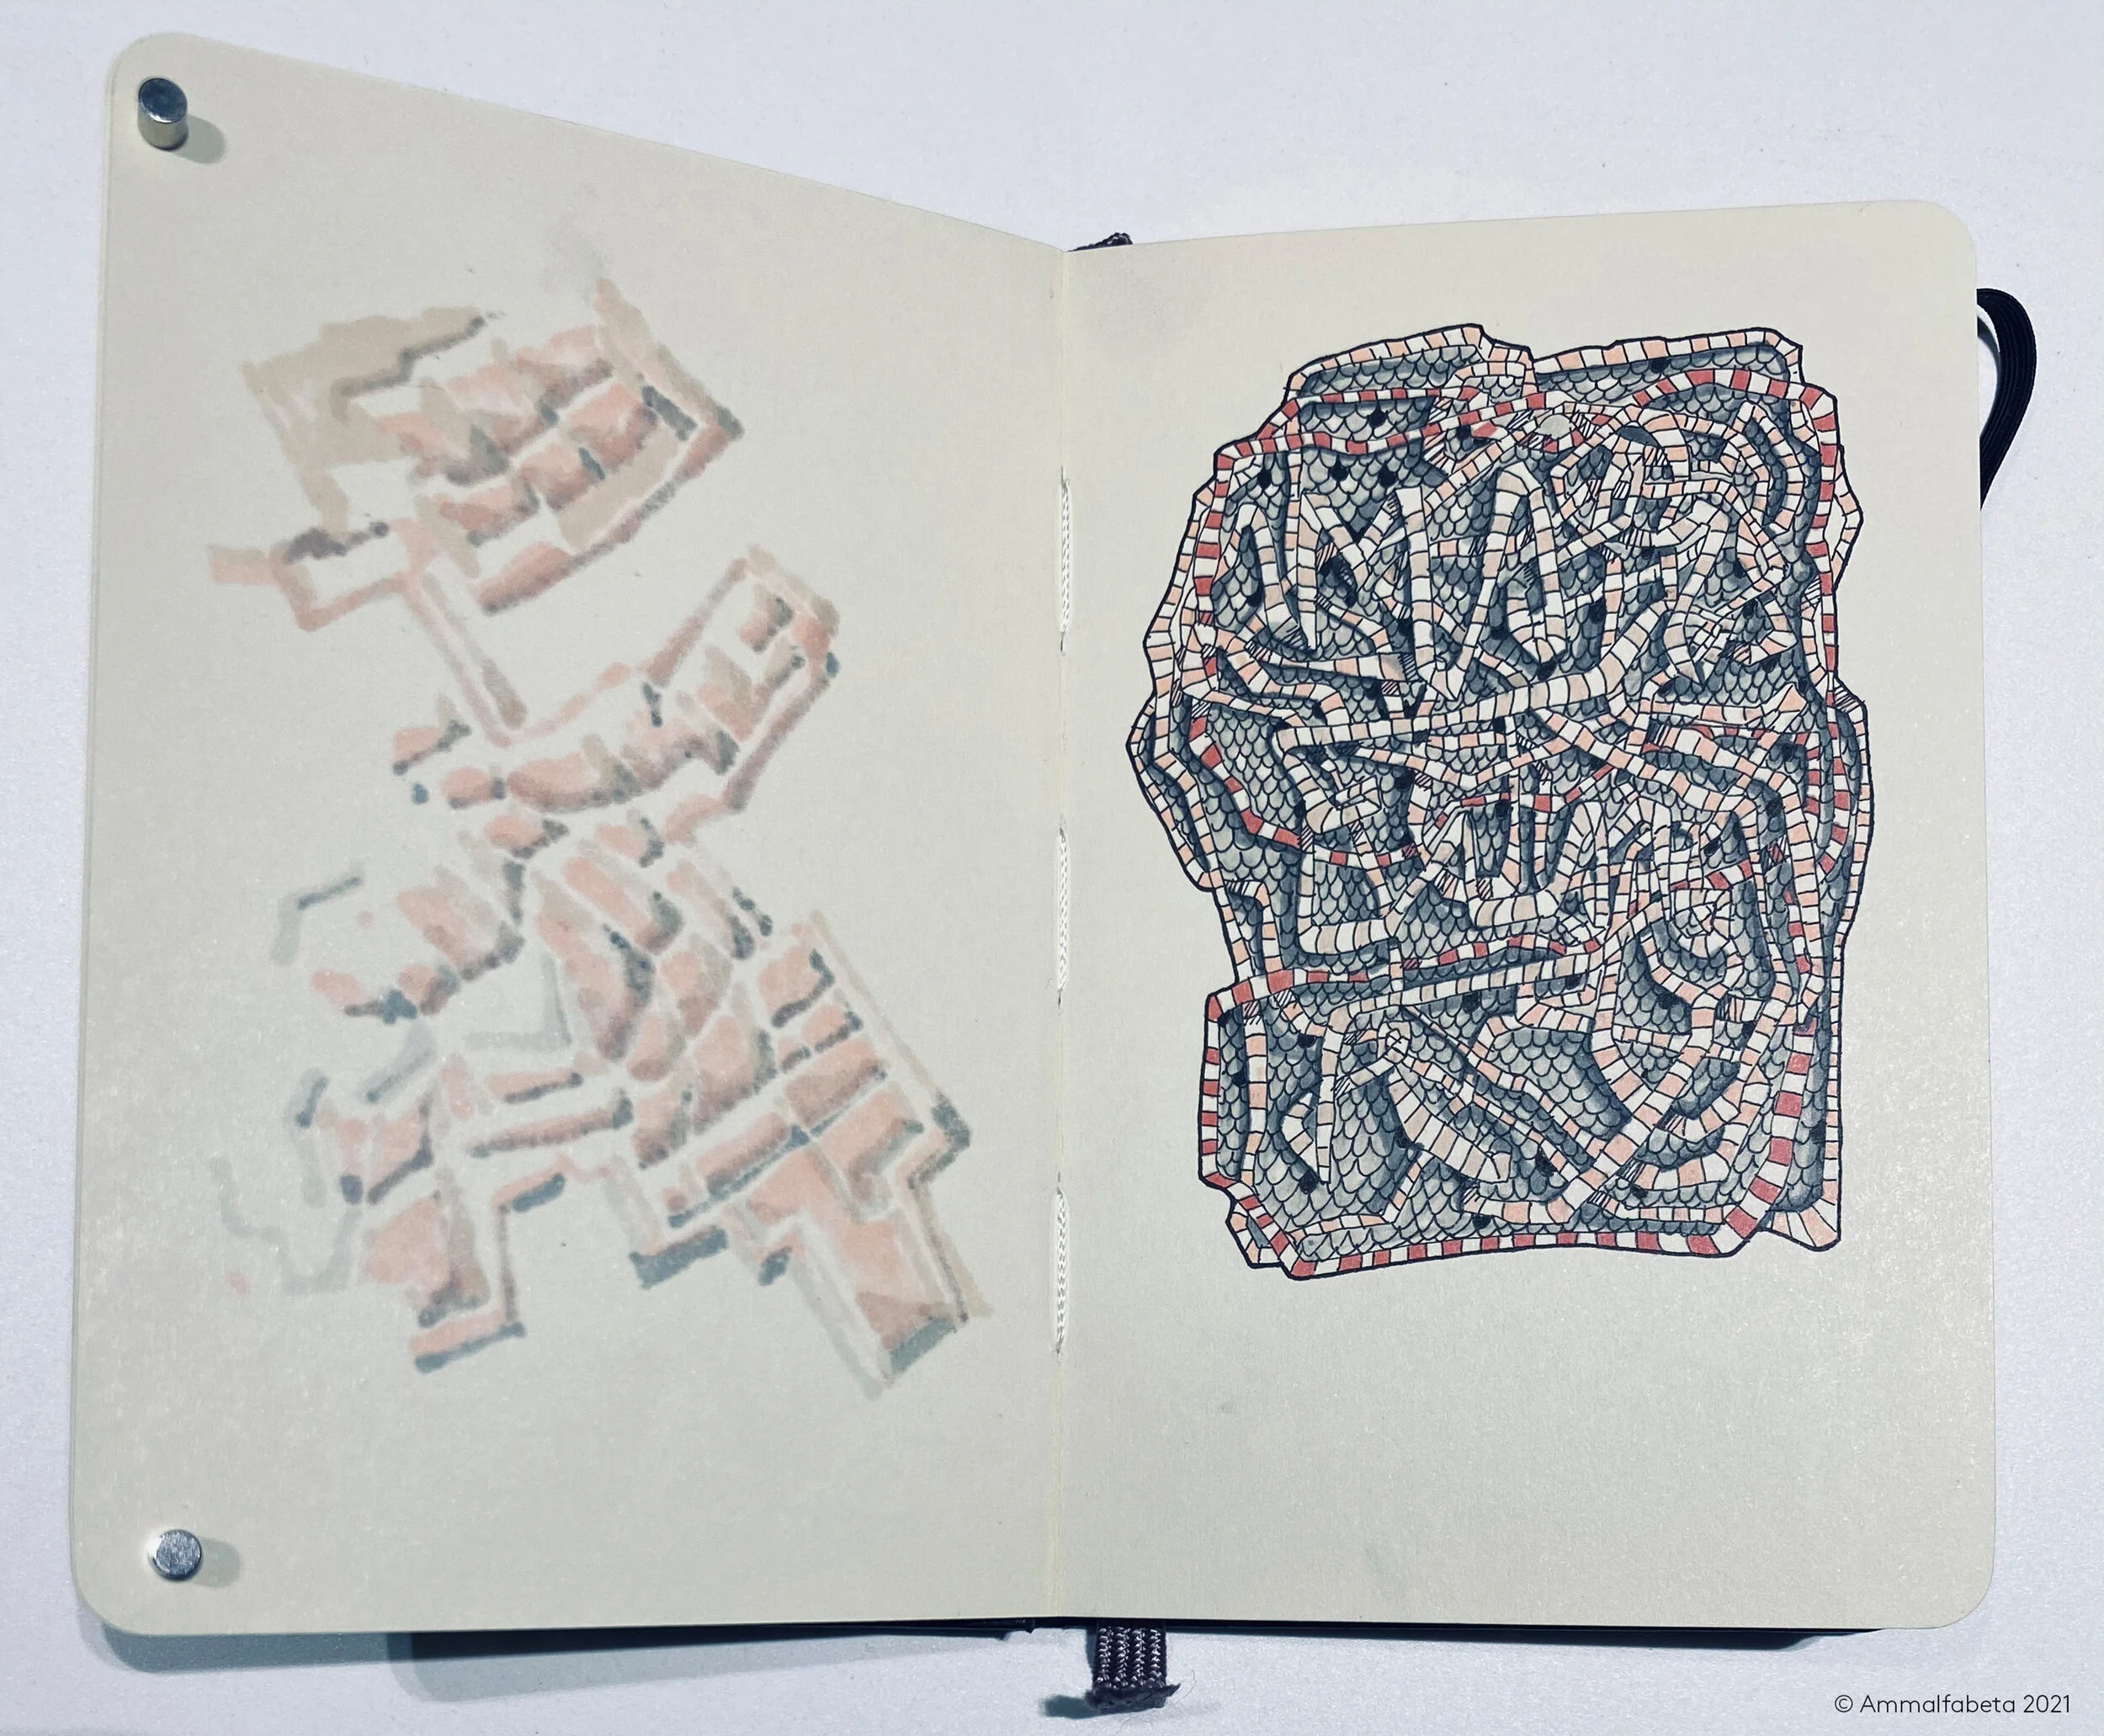 © Ammalfabeta 2021